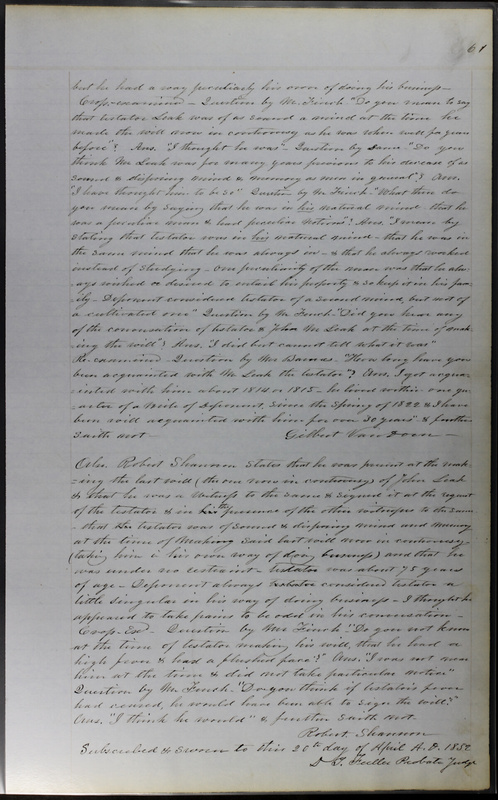 61
but he had a way peculiarly his own of doing his business -
Cross-examined - Question by Mr. Finch "Do you mean to say
that testator Leak was of as sound a mind at the time he
made the will now in controversy as he was when well &
before"? Ans. "I thought he was". Question by Same "Do you
think Mr Leak was for many years previous to his decease of as
sound & disposing mind & memory as men in general"? Ans.
"I have thought him to be so" Question by Mr Finch. "What then do
you mean by saying that he was in his natural mind - that he
was a peculiar man & had peculiar notions"? Ans. "I mean by
stating that testator was in his natural mind - that he was in
the same mind that he was always in - & that he always worked
instead of studying - One peculiarity of the man was that he alw-
ays wished or desired to entail his property & so keep it in his fam-
ily - Deponent considered testator of a sound mind, but not of
a cultivated one" Question by Mr Finch. "Did you hear any
of the conversation of testator & John Mc Leak at the time of mak-
ing the will"? Ans. "I did but cannot tell what it was"
Re-examined - Question by Mr Barnes. "How long have you
been acquainted with Mr Leak the testator"? Ans. I got acqua-
inted with him about 1814 or 1815 - he lived within one qu-
arter of a mile of Deponent, since the Spring of 1822 & I have
been well acquainted with him for over 30 years" & further
saith not -
Gilbert Van Doren -
Also. Robert Shannon States that he was present at the mak-
ing the last will (the one now in controversy) of John Leak
& that he was a witness to the same & signed it at the request
of the testator & in the presence of the other witnesses to the same
- that testator was of sound & disposing mind and memory
at the time of making said last will now in controversy
(taking him in his own way of doing business) and that he
was under no restraint - testator was about 75 years
of age - Deponent always considered testator a
little singular in his way of doing business - I thought he
appeared to take pains to be odd in his conversation -
Cross. Ex - Question by Mr Finch. "Do you not know
at the time of testator making his will, that he had a
high fever & had a flushed face?" Ans. "I was not near
him at the time & did not take particular notice"
Question by Mr Finch. "Do you think if testator's fever
had ceased, he would have been able to sign the will?"
Ans. "I think he would" & further saith not.
Robert Shannon
Subscribed & sworn to this 20th day of April A. D. 1852
D. T. Fuller Probate Judge